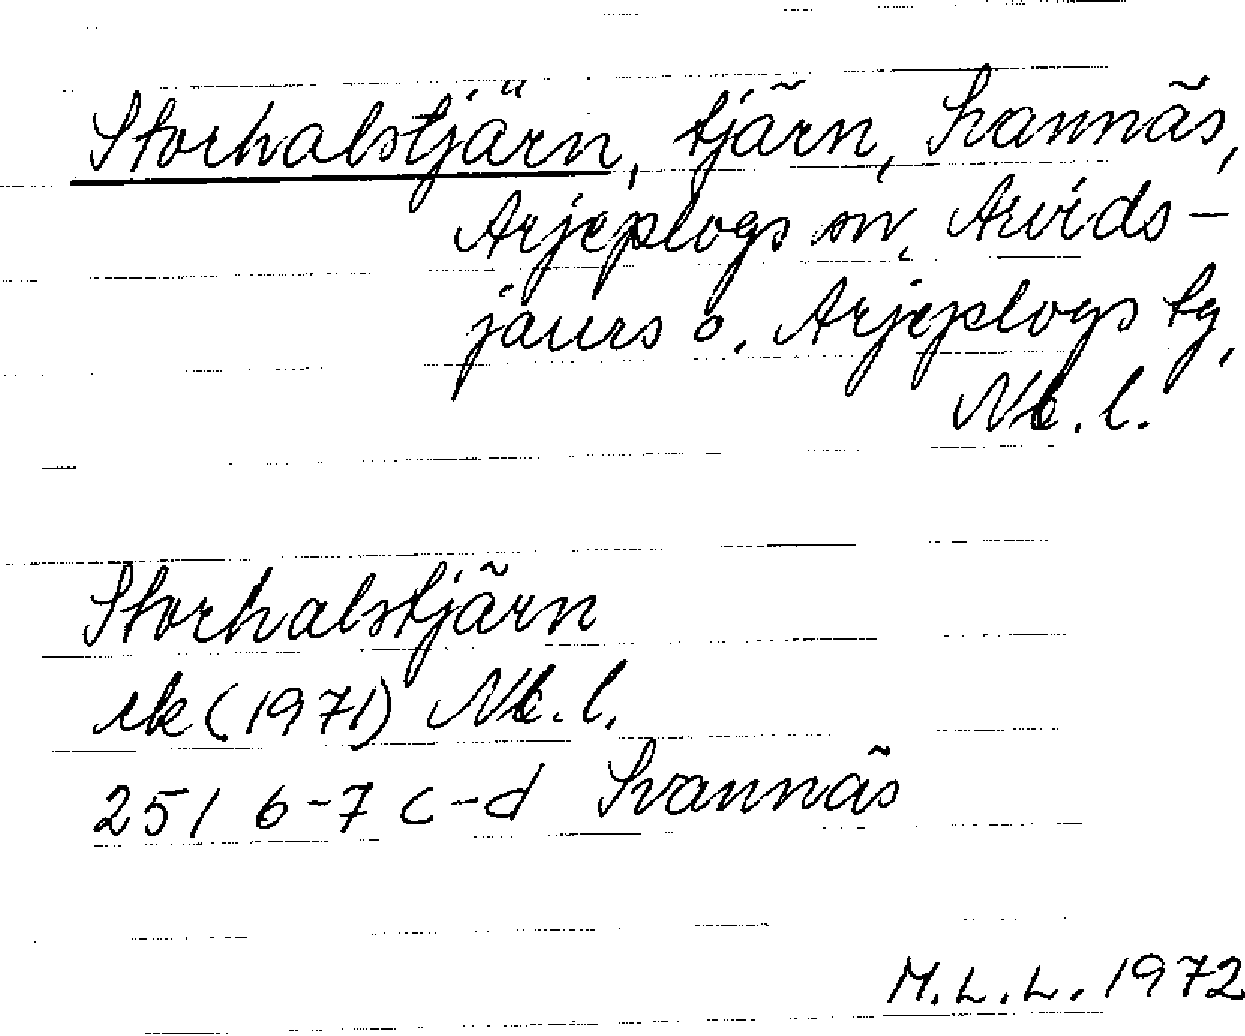 Storhalstjärn, tjärn, Svannäs,
Arjeplogs sn, Arvids-
jaurs o. Arjeplogs tg,
Nb. l.
Storhalstjärn
ek (1971) Nb. l.
25 I 6-7 c-d Svannäs
M.L.L. 1972